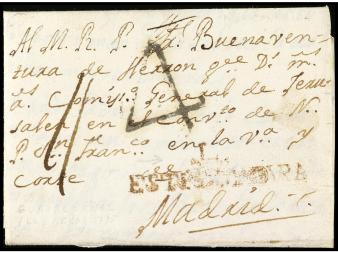 Al M. R. P. Fr. Buenaven-
tura de Herron qe. D. ms.
as. Comiso. General de Jeru
salen en el Convto. de N.
P. Sn. Franco. en la Va. y
Corte
4
Madrid